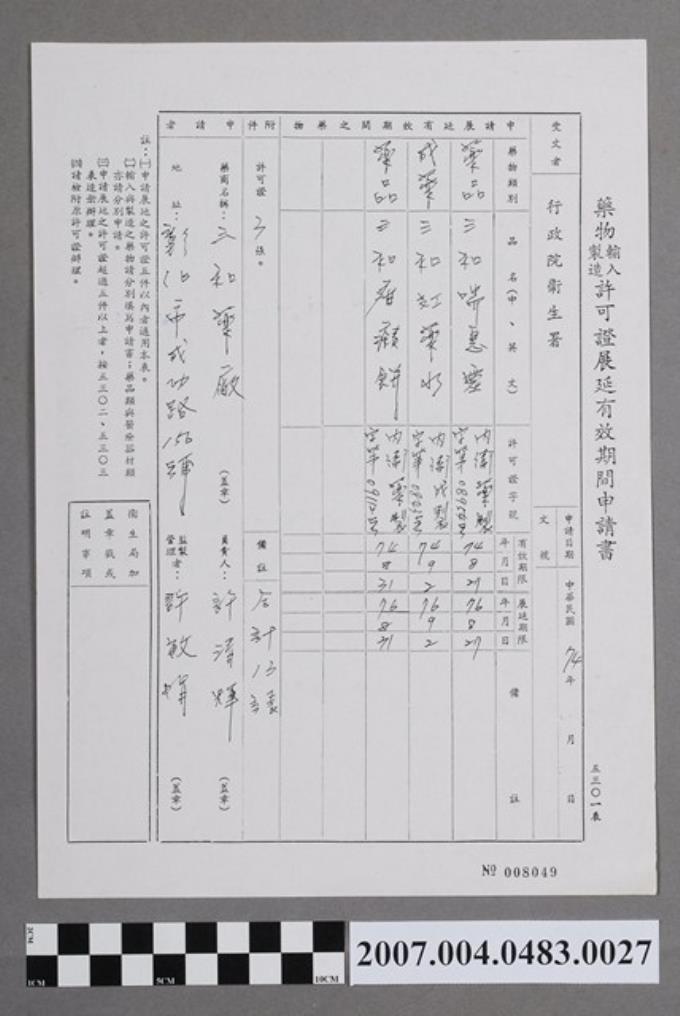 藥物輸入製造許可證展延有效期間申請書
五三〇一表
受文者
行政院衛生署
文號
申請日期
中華民國74年 月 日
申請展延有效期間之藥物
藥物類別
品名(中、英文)
許可證字號
有效期限
年月日
展延期限
年月日
備註
藥品
三和喘惠靈
內衛藥製字第
74 8 27
76 8 27
成藥
三和紅藥水
內衛成製字第
74 9 2
76 9 2
藥品
三和
內衛藥製字第
74 8 31
76 8 31
附件
許可證 3 張。
備註
合計13張
申請者
藥商名稱:三和藥廠
(蓋章)
負責人:許清輝
(蓋章)
地址:彰化市成功路156號
監製管理者:許敏
(蓋章)
註:㈠申請展延之許可證五件以內者適用本表。
㈡輸入與製造之藥物請分別填寫申請書;藥品類與醫療器材類亦請分別申請。
㈢申請展延之許可證超過五件以上者,按五三〇二、五三〇三表造册辦理。
㈣請檢附原許可證辦理。
衛生局加蓋章戳或証明事項
№ 008049
2CM
1CM
5CM
10CM
2007.004.0483.0027